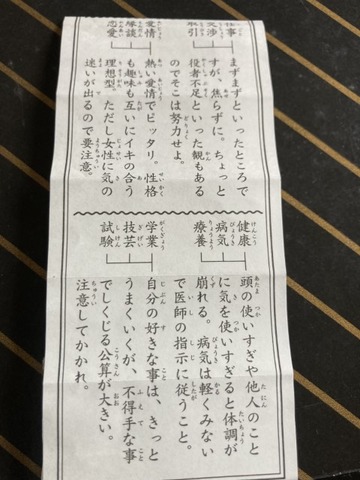 仕事
交渉
取引
まずまずといったところで
すが、焦らずに。ちょっと
役者不足といった観もある
のでそこは努力せよ。
愛情
縁談
恋愛
熱い愛情でピッタリ。性格
も趣味も互いにイキの合う
理想型。ただし女性に気の
迷いが出るので要注意。
健康
病気
療養
頭の使いすぎや他人のこと
に気を使いすぎると体調が
崩れる。病気は軽くみない
で医師の指示に従うこと。
学業
技芸
試験
自分の好きな事は、きっと
うまくいくが、不得手な事
でしくじる公算が大きい。
注意してかかれ。